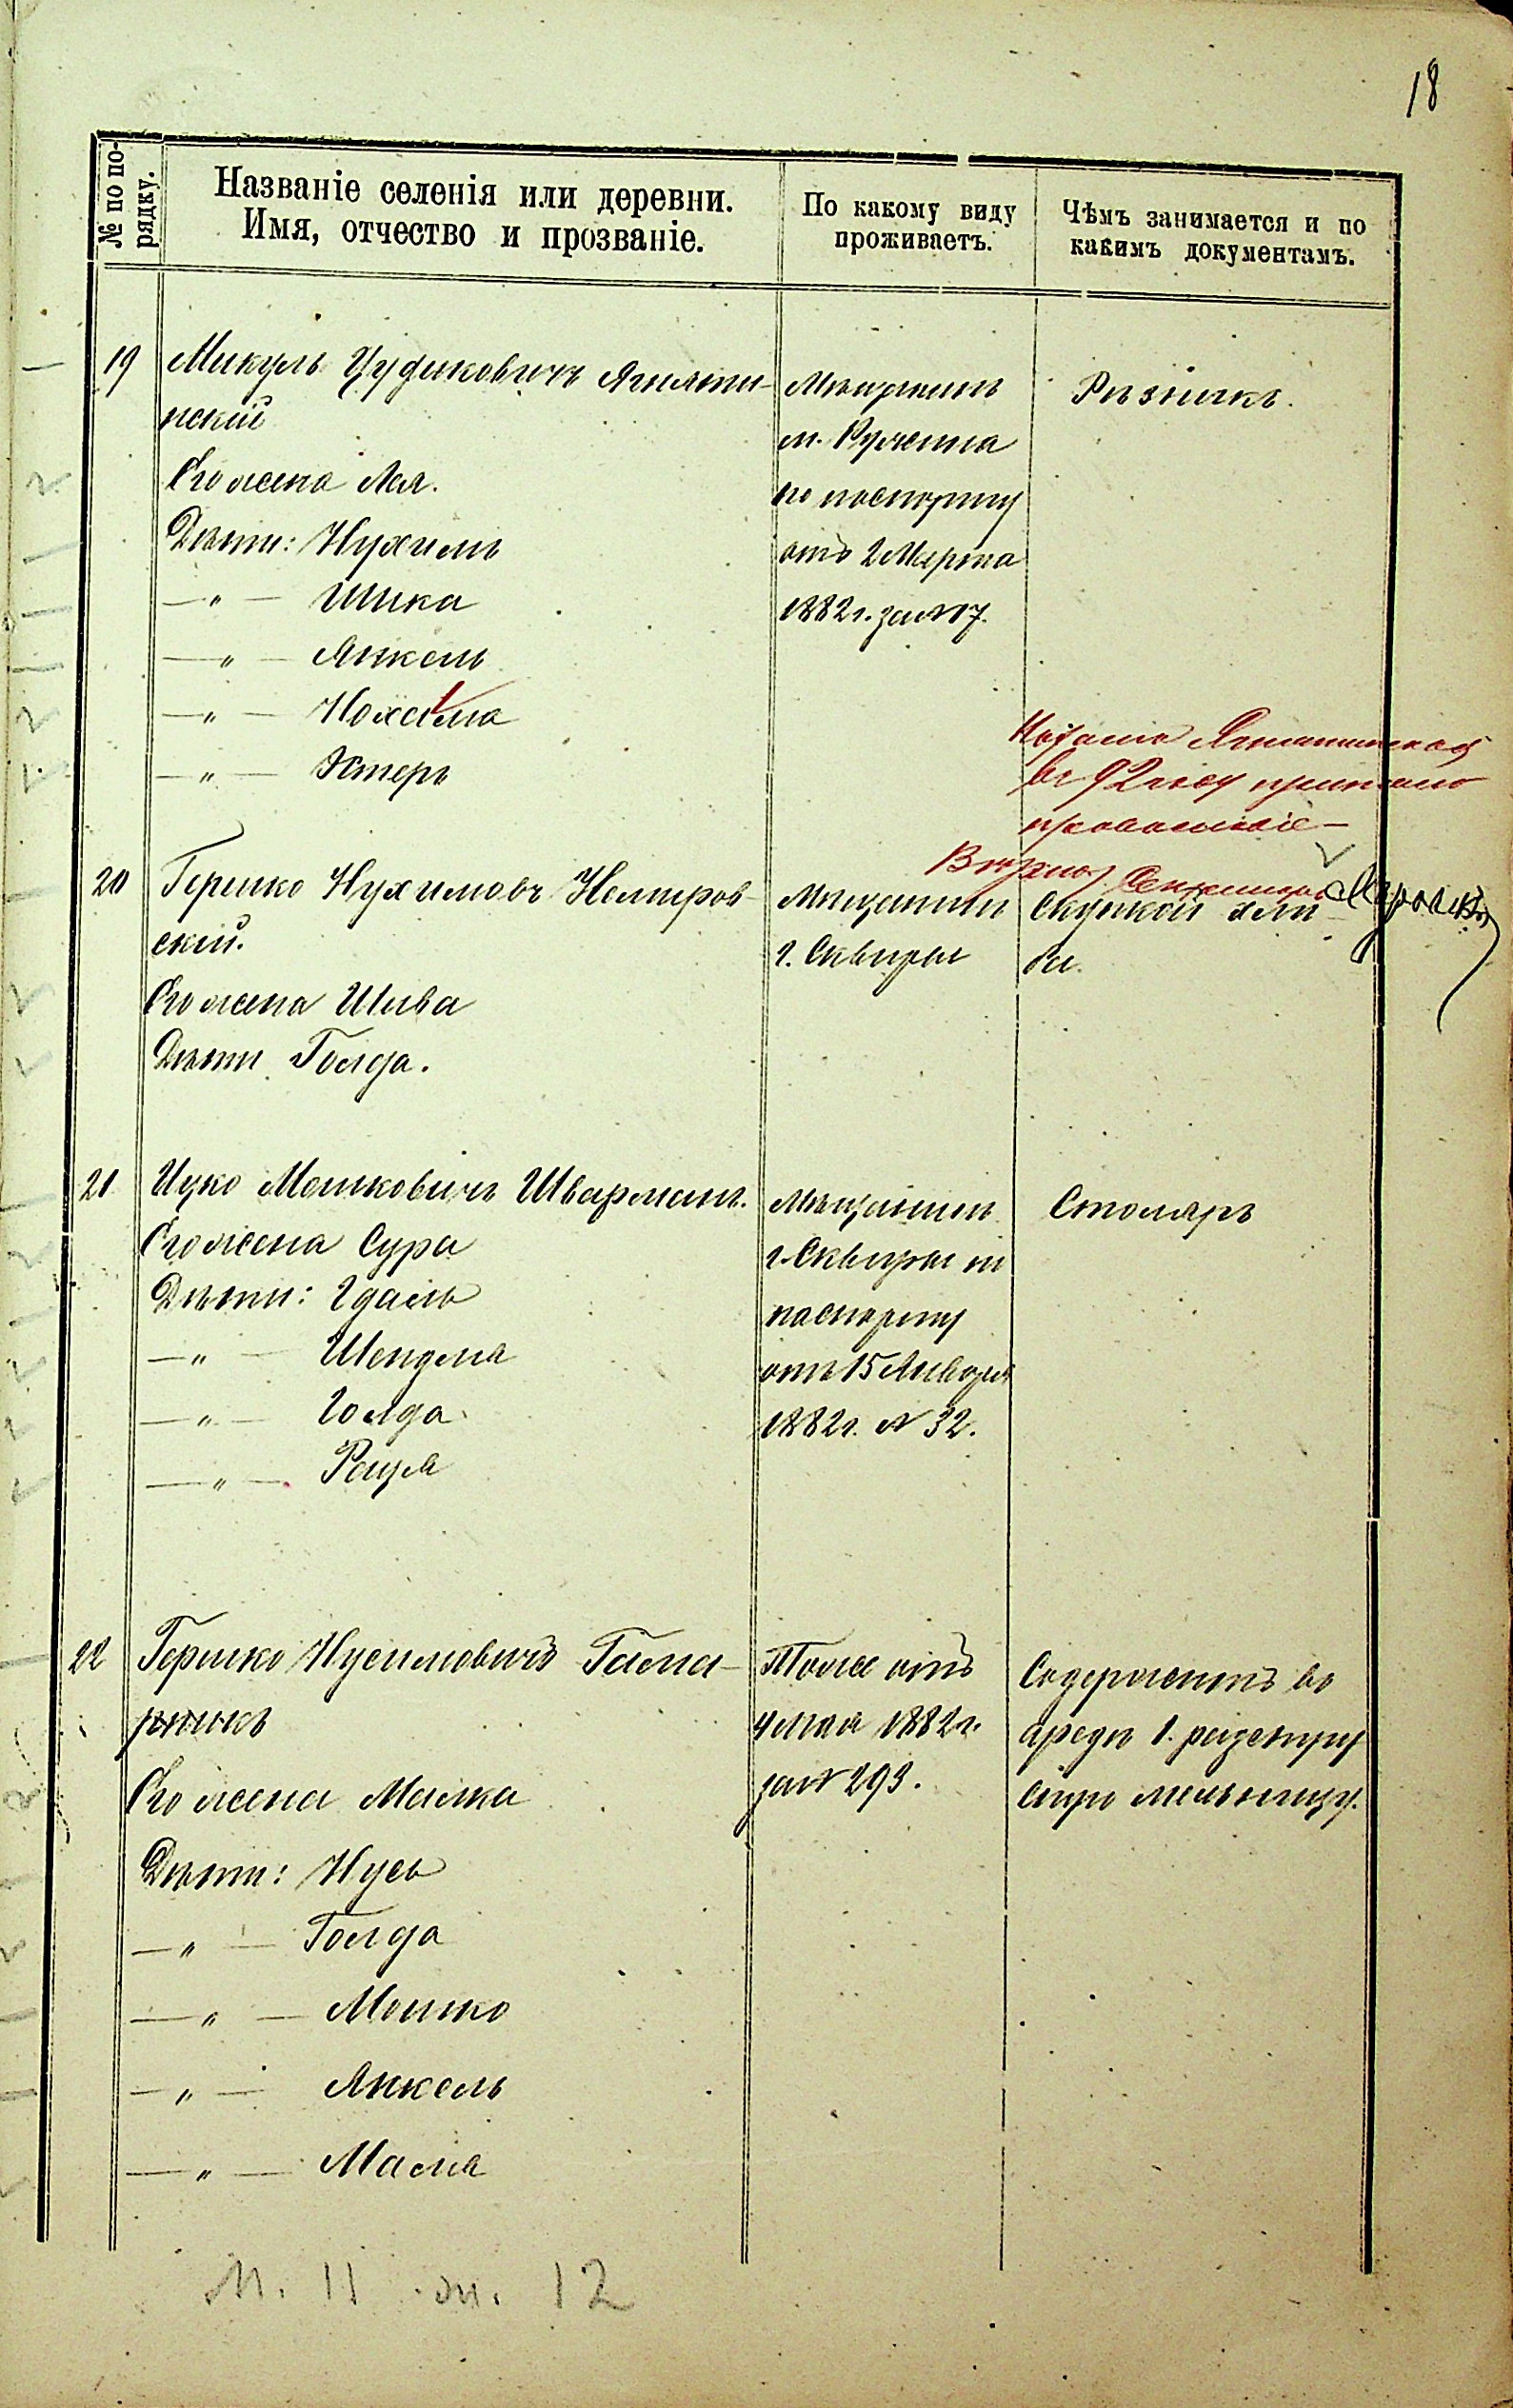 18
№ по по-
рядку.
Названіе селенія или деревни.
Имя, отчество и прозваніе.
По какому виду
проживаетъ.
Чѣмъ занимается и по
какимъ документамъ.
19
Микуль Цудиковичъ Ягняти-
нскій
Его жена Лея.
Дѣти: Нухимъ
—„— Шика
—„— Янкель
—„—
—„— Эстеръ
Мѣщанинъ
м. Ружина
по паспорту
отъ 2 Марта
1882 г. за № 17.
Рѣзникъ.
Ягнятинская
въ 92 году приняла
православіе —
Вѣрно
20
Гершко Нухимовъ Немиров-
скій.
Его жена Шива
Дѣти Голда.
Мѣщанинъ
г. Сквиры
Скупкой хлѣ-
ба.
21
Ицко Мошковичъ Шварманъ.
Его жена Сура
Дѣти: Гдаль
—„— Шендля
—„— Голда
—„— Рейзя
Мѣщанинъ
г. Сквиры по
паспорту
отъ 15 Января
1882 г. № 32.
Столяръ
22
Гершко Нусимовичъ Гама-
рникъ
Его жена Малка
Дѣти: Нусь
—„— Голда
—„— Мошко
—„— Янкель
—„— Маля
Тоже отъ
4 Мая 1882 г.
за № 293.
Содержитъ въ
арендѣ
мельницу.
м. 11 ж. 12